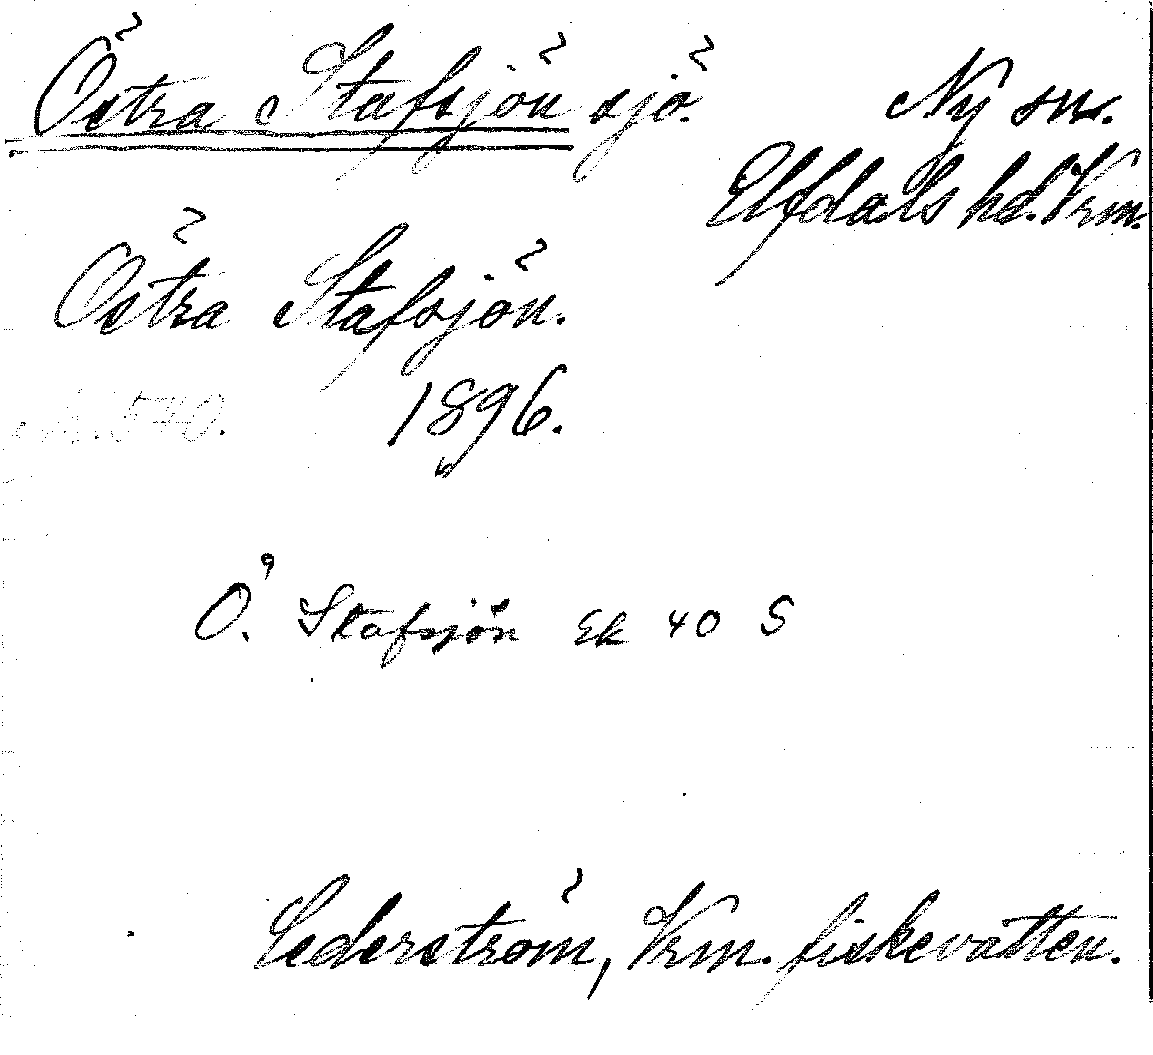 Östra Stafsjön sjö. Ny sn.
Elfdals hd. Vrm.
Östra Stafsjön.
1896.
Ö. Stafsjön Ek 40 S
Cederström, Vrm. fiskevatten.